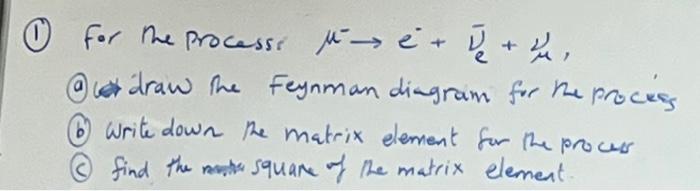 ① For the process: μ⁻ → e⁻ + ν̄ₑ + ν_μ,
ⓐ draw the Feynman diagram for the process
ⓑ write down the matrix element for the process
ⓒ find the square of the matrix element.